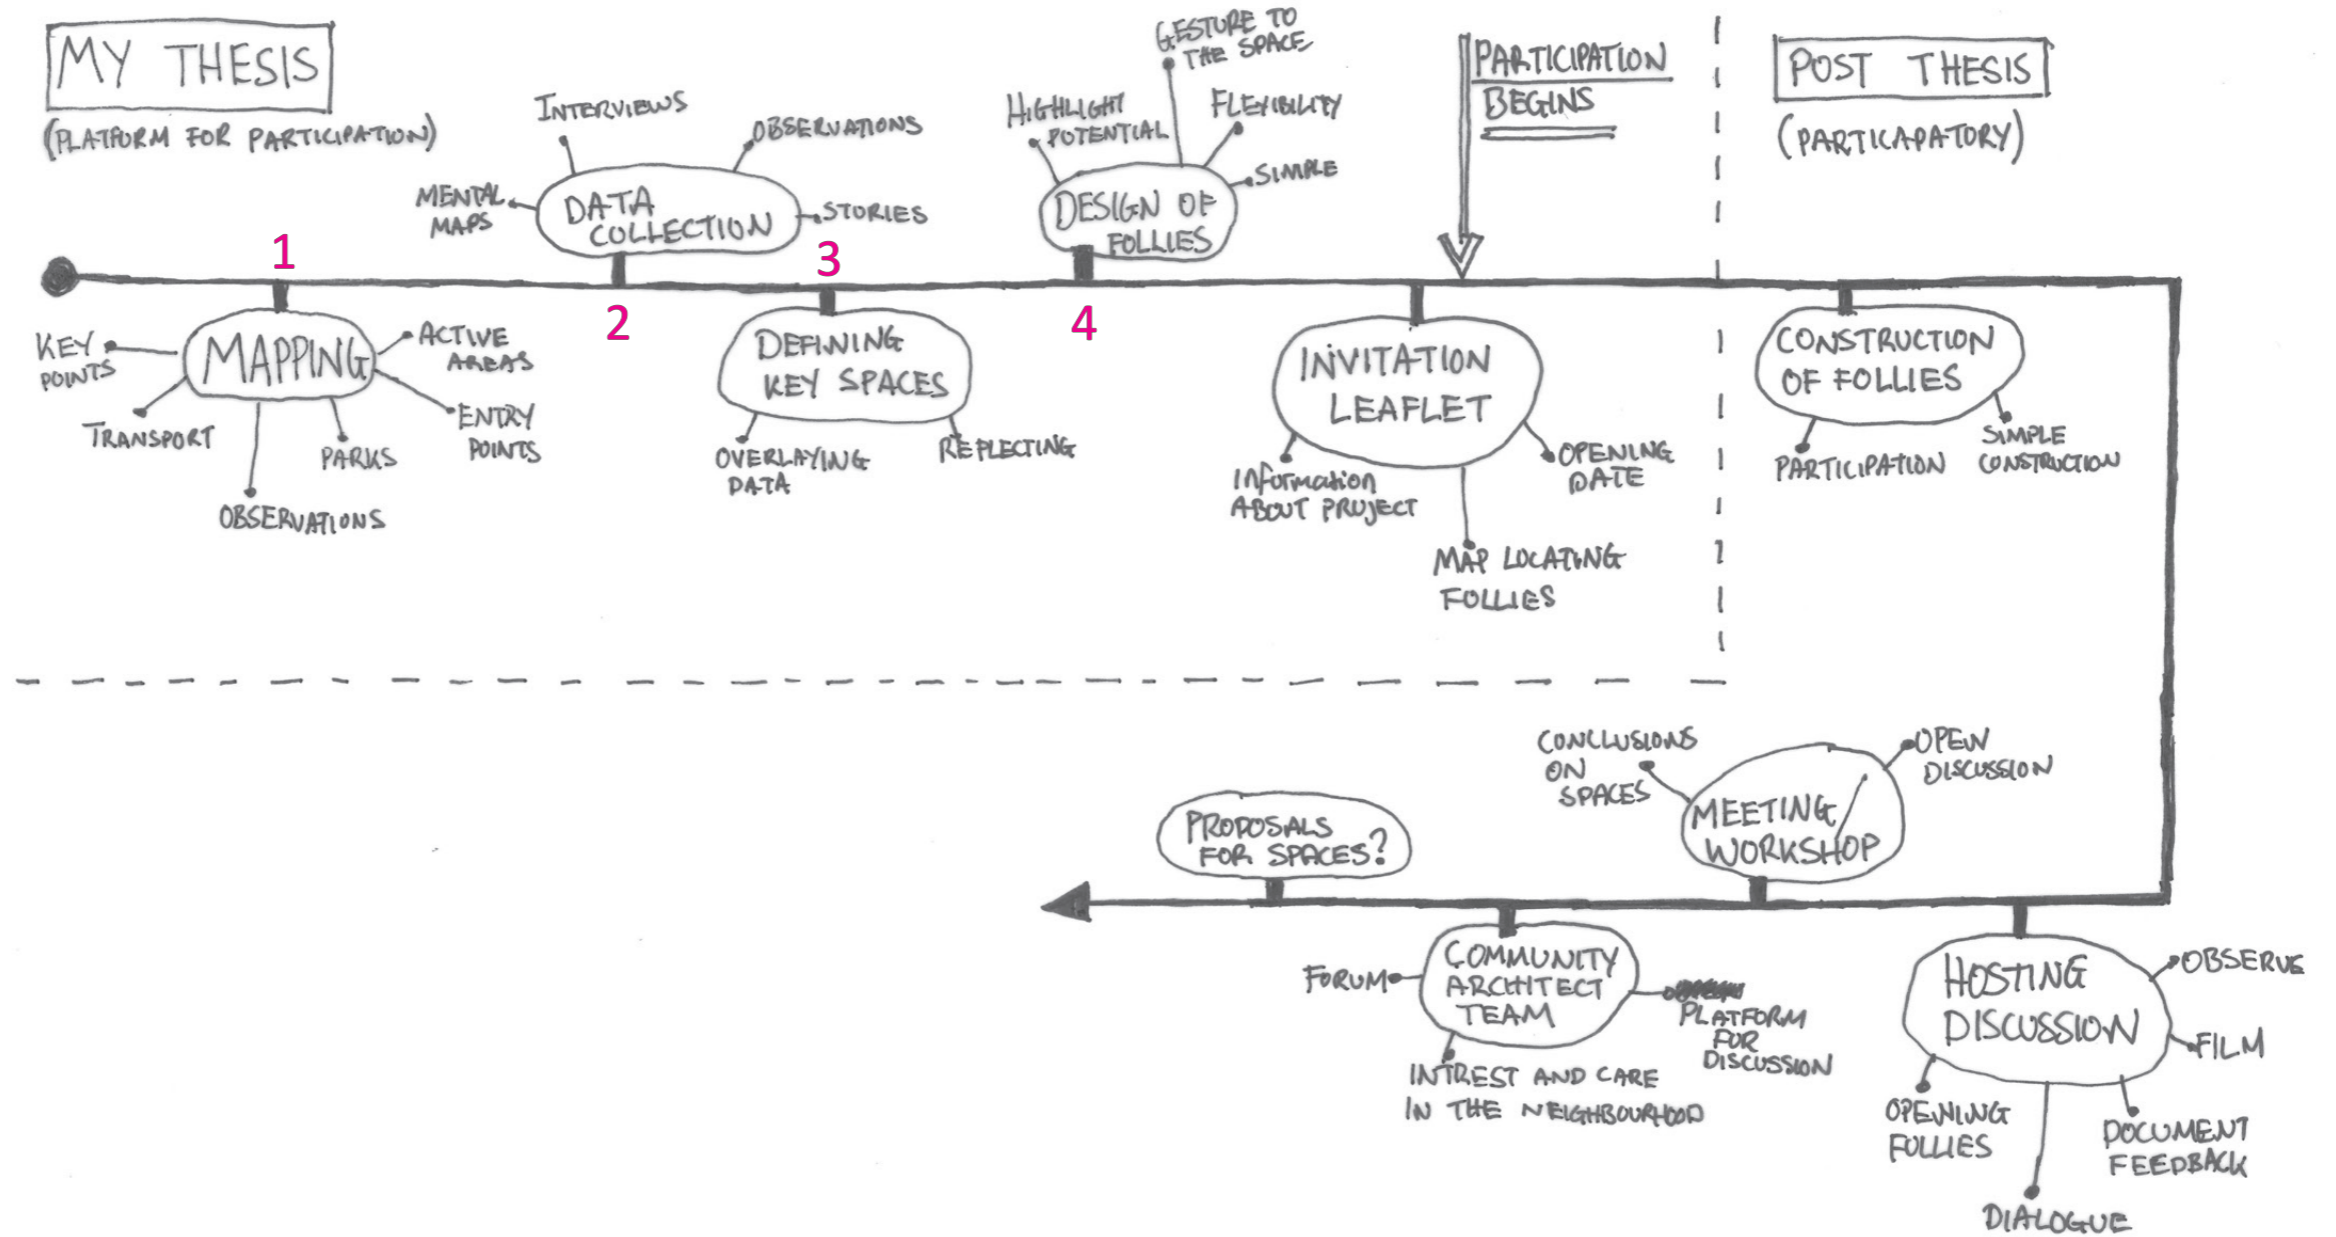 MY THESIS
(PLATFORM FOR PARTICIPATION)
INTERVIEWS
OBSERVATIONS
MENTAL
MAPS
DATA
COLLECTION
STORIES
GESTURE TO
THE SPACE
HIGHLIGHT
POTENTIAL
FLEXIBILITY
SIMPLE
DESIGN OF
FOLLIES
PARTICIPATION
BEGINS
POST THESIS
(PARTICAPATORY)
1
2
3
4
KEY
POINTS
MAPPING
ACTIVE
AREAS
TRANSPORT
ENTRY
POINTS
PARKS
OBSERVATIONS
DEFINING
KEY SPACES
OVERLAYING
DATA
REFLECTING
INVITATION
LEAFLET
INFORMATION
ABOUT PROJECT
OPENING
DATE
MAP LOCATING
FOLLIES
CONSTRUCTION
OF FOLLIES
PARTICIPATION
SIMPLE
CONSTRUCTION
CONCLUSIONS
ON
SPACES
OPEN
DISCUSSION
MEETING/
WORKSHOP
PROPOSALS
FOR SPACES?
FORUM
COMMUNITY
ARCHITECT
TEAM
PLATFORM
FOR
DISCUSSION
INTREST AND CARE
IN THE NEIGHBOURHOOD
HOSTING
DISCUSSION
OBSERVE
FILM
OPENING
FOLLIES
DOCUMENT
FEEDBACK
DIALOGUE